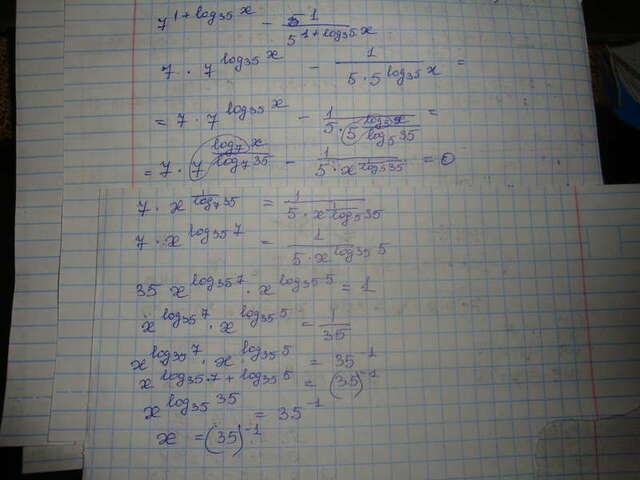 7^{1+log_{35}x} - \frac{1}{5^{1+log_{35}x}}
7 · 7^{log_{35}x} - \frac{1}{5·5^{log_{35}x}} =
= 7 · 7^{log_{35}x} - \frac{1}{5·5^{\frac{log_5 x}{log_5 35}}} =
= 7 · 7^{\frac{log_7 x}{log_7 35}} - \frac{1}{5·x^{\frac{1}{log_5 35}}} = 0
7 · x^{\frac{1}{log_7 35}} = \frac{1}{5·x^{\frac{1}{log_5 35}}}
7 · x^{log_{35}7} = \frac{1}{5·x^{log_{35}5}}
35 x^{log_{35}7} · x^{log_{35}5} = 1
x^{log_{35}7} · x^{log_{35}5} = \frac{1}{35}
x^{log_{35}7} · x^{log_{35}5} = 35^{-1}
x^{log_{35}7 + log_{35}5} = (35)^{-1}
x^{log_{35}35} = 35^{-1}
x = (35)^{-1}